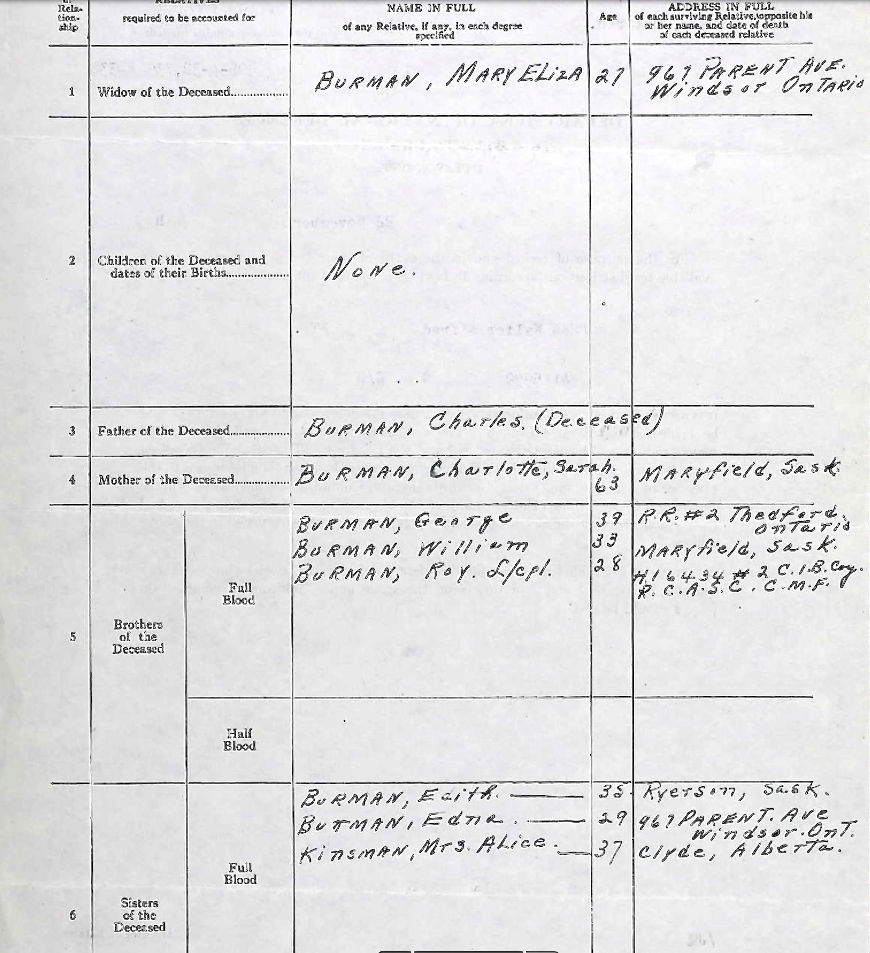 of
Rela-
tion-
ship
RELATIVES
required to be accounted for
NAME IN FULL
of any Relative, if any, in each degree
specified
Age
ADDRESS IN FULL
of each surviving Relative, opposite his
or her name, and date of death
of each deceased relative
1 Widow of the Deceased................. BURMAN, MARY ELIZA 27 967 PARENT AVE.
Windsor Ontario
2 Children of the Deceased and
dates of their Births.................. None.
3 Father of the Deceased................. BURMAN, Charles. (Deceased)
4 Mother of the Deceased................ BURMAN, Charlotte, Sarah.
63 MARyfield, Sask
5 Brothers
of the
Deceased
Full
Blood
BURMAN, George 39 R.R.#2 Thedford.
Ontario
BURMAN, William 33 MARyfield, Sask.
BURMAN, Roy. L/cpl. 28 H16434 #2 C.I.B. Coy.
R.C.A.S.C. C.M.F.
Half
Blood
6 Sisters
of the
Deceased
Full
Blood
BURMAN, Edith. 35 Ryerson, Sask.
BURMAN, Edna. 29 967 PARENT. Ave
Windsor. Ont.
Kinsman, Mrs. Alice. 37 Clyde, Alberta.